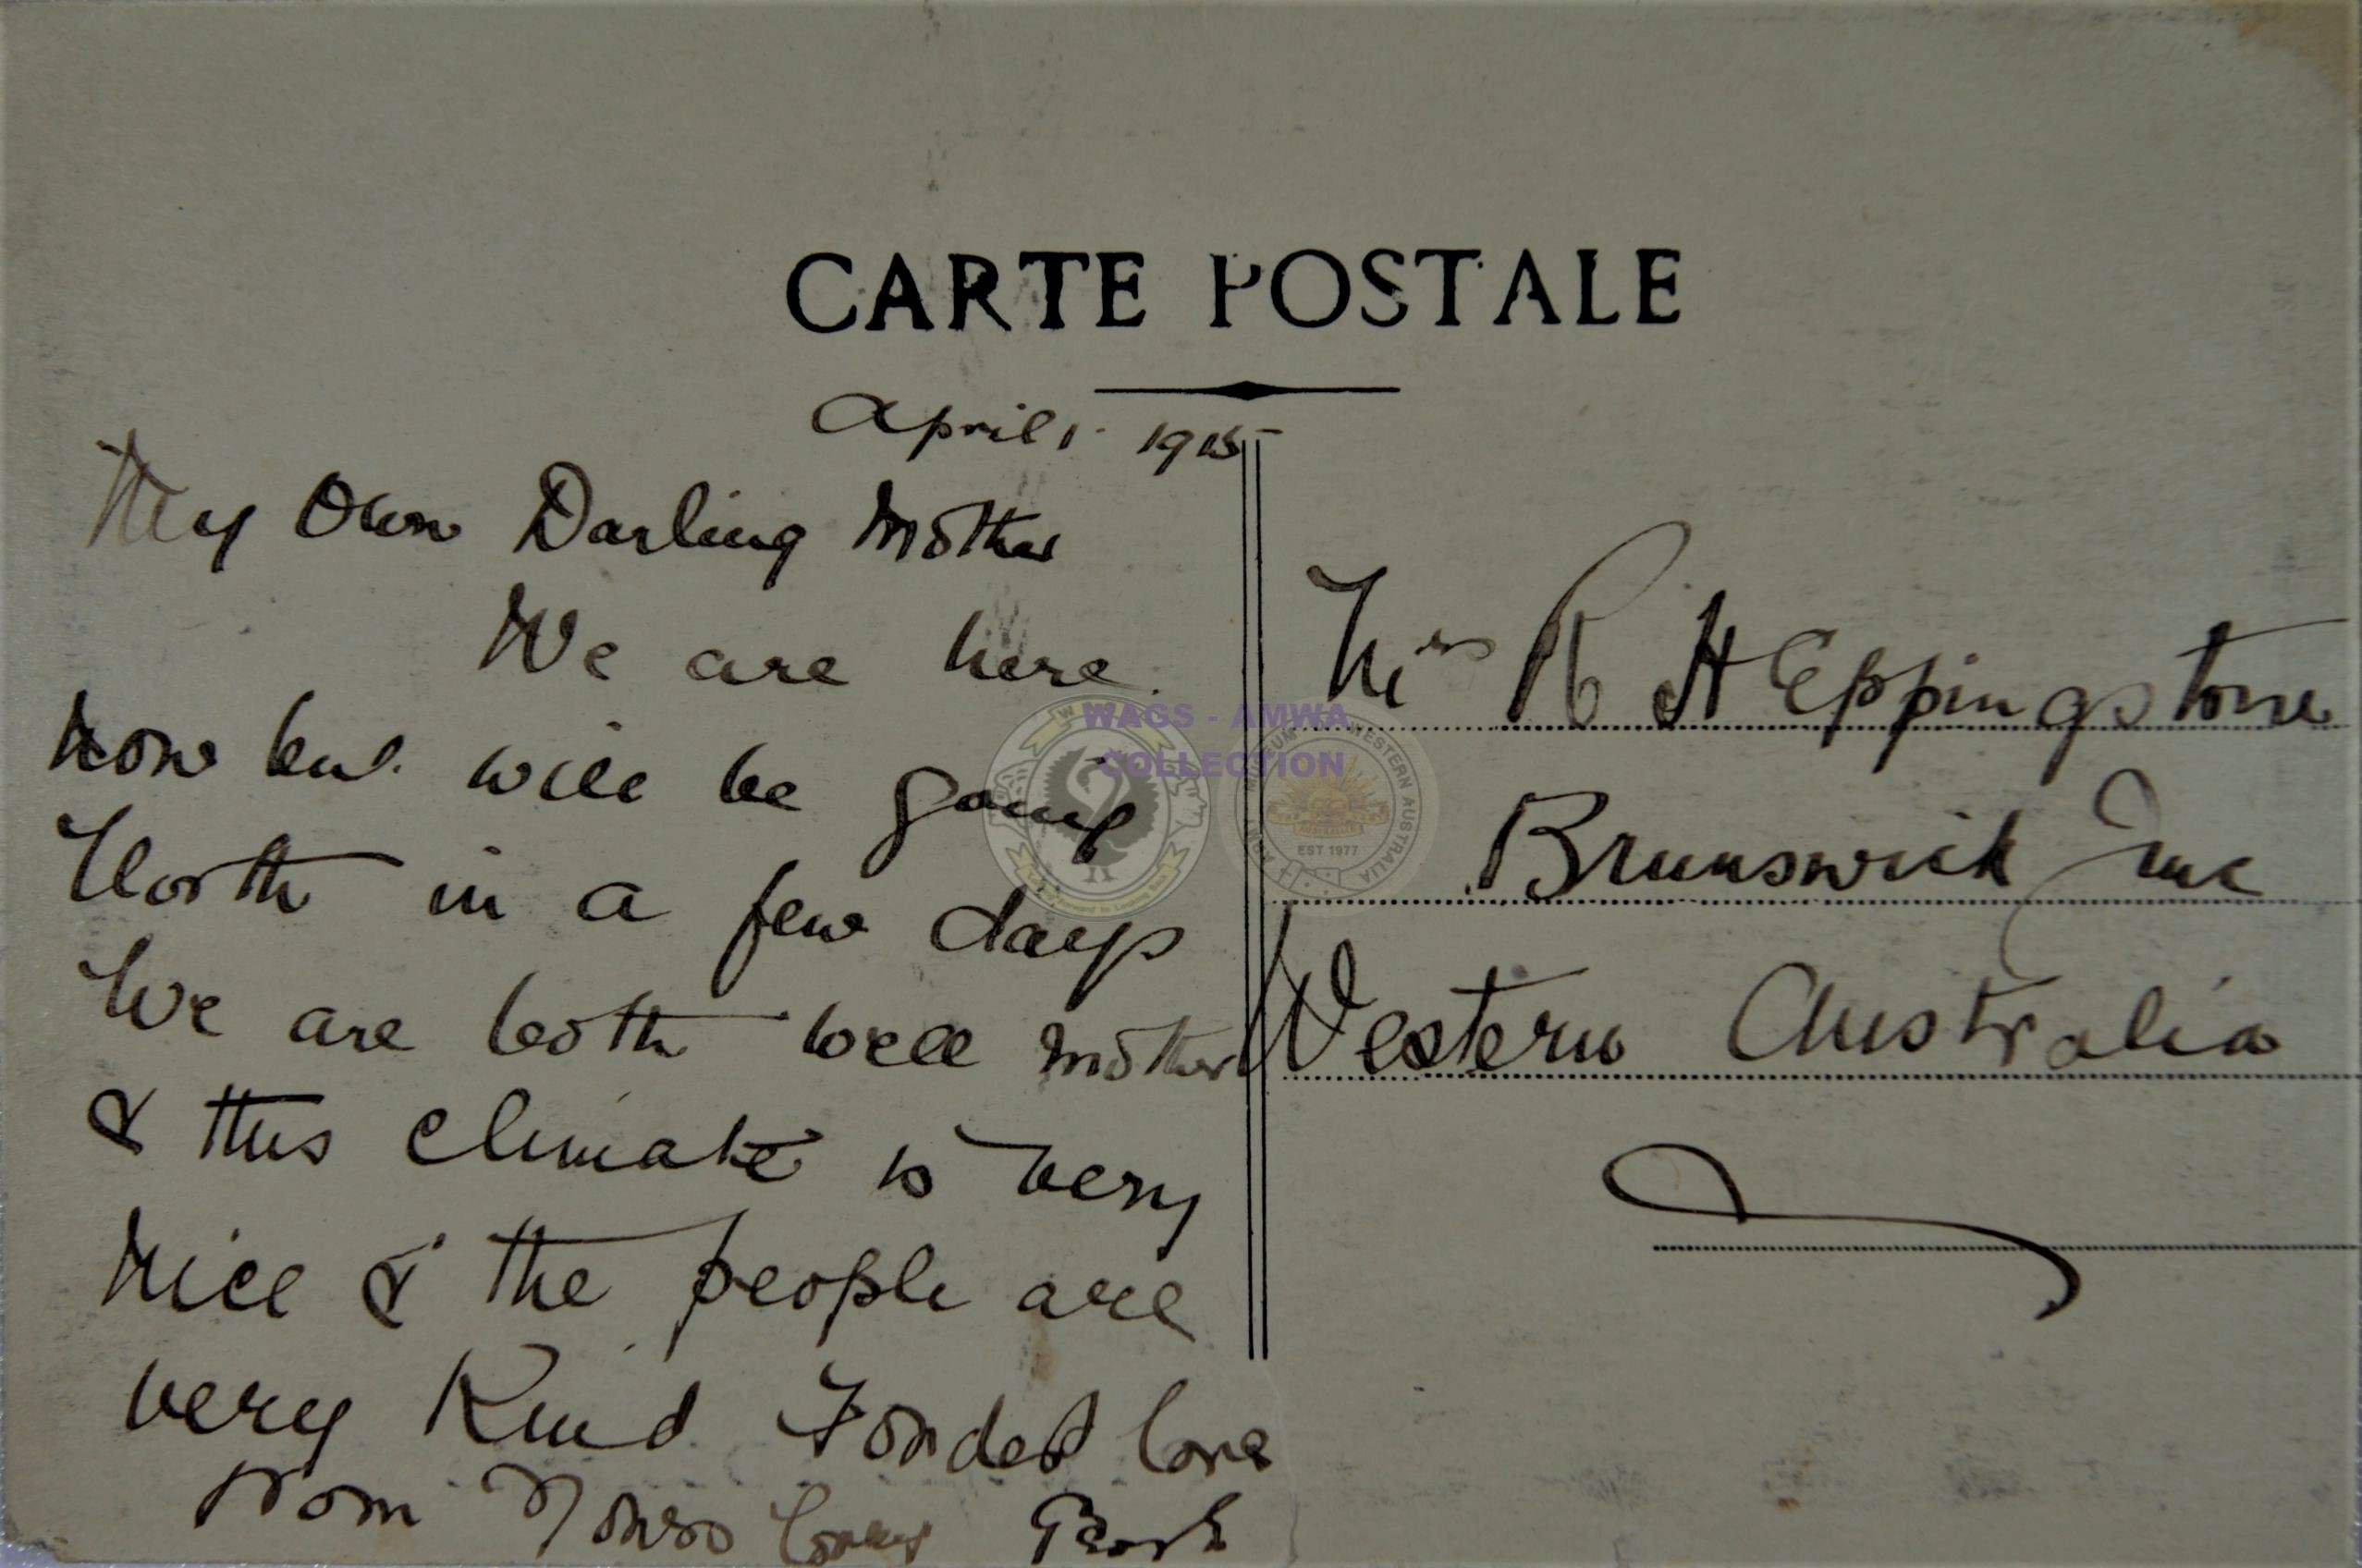 CARTE POSTALE
April 1. 1915
My Own Darling Mother
We are here
Now but will be going
North in a few days
We are both well Mother
& this climate is very
Nice & the people are
very Kind Fondest love
from Yours
Mrs R H Eppingstone
Brunswick Junc
Western Australia
WAGS - AMWA
COLLECTION
WESTERN AUSTRALIA
EST 1977